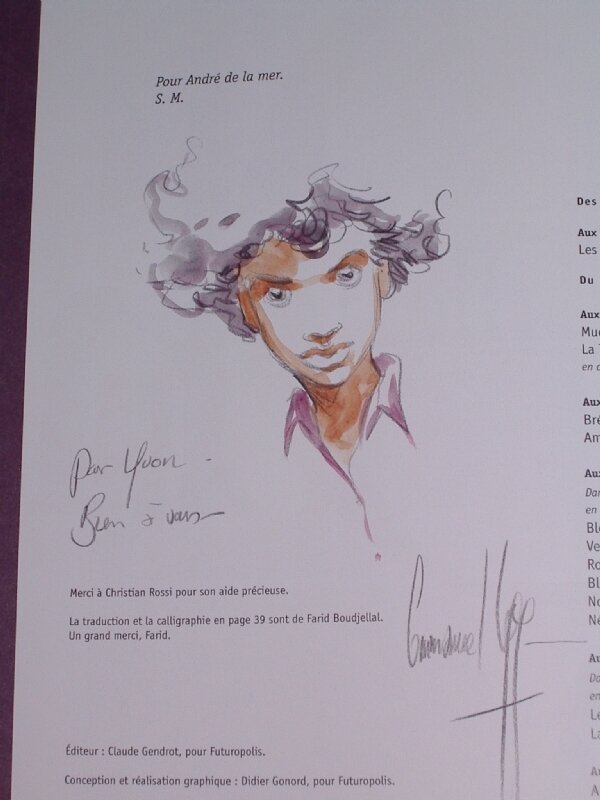 Pour André de la mer.
S. M.
Pour Yvon -
Bien à vous
Merci à Christian Rossi pour son aide précieuse.
La traduction et la calligraphie en page 39 sont de Farid Boudjellal.
Un grand merci, Farid.
Éditeur : Claude Gendrot, pour Futuropolis.
Conception et réalisation graphique : Didier Gonord, pour Futuropolis.
Emmanuel
Des
Aux
Les
Du
Aux
La
en
Aux
Bré
Am
Aux
Dan
en
Ble
Ve
Ro
Bl
No
Né
Au
Da
en
Le
La